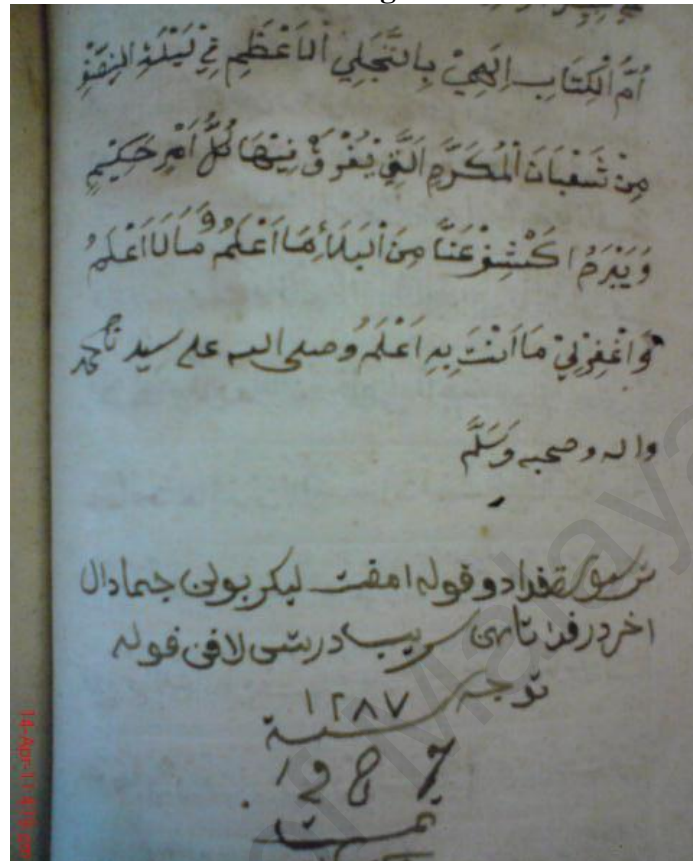 أُمِّ الْكِتَابِ إِلَهِيْ بِالتَّجَلِّي الْاَعْظَمِ فِيْ لَيْلَةِ النِّصْفِ
مِنْ شَعْبَانَ الْمُكَرَّمِ الَّتِيْ يُفْرَقُ فِيْهَا كُلُّ اَمْرٍ حَكِيْمٍ
وَيُبْرَمُ اكْشِفْ عَنَّا مِنَ الْبَلَاءِ مَا اَعْلَمُ وَمَالَا اَعْلَمُ
وَاغْفِرْلِيْ مَا اَنْتَ بِهِ اَعْلَمُ وصلى الله على سيدنا محمد
واله وصحبه وَسَلَّمَ
ترسورة فدا دو فوله امفت ليكر بولن جمادال
اخر در فدا تاهن سريب دربتس لافن فوله
توجه
سنة ١٢٨٧
تمت
14-Apr-11 4:16 pm